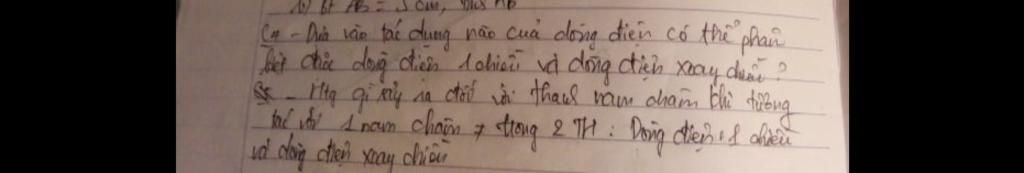 b) bt AB = 5 cm,
C4 - Dựa vào tác dụng nào của dòng điện có thể phân
biệt được dòng điện 1 chiều và dòng điện xoay chiều?
- Htg gì xảy ra đối với thanh nam châm khi tương
tác với 1 nam châm ≠ trong 2 TH: Dòng điện 1 chiều
và dòng điện xoay chiều